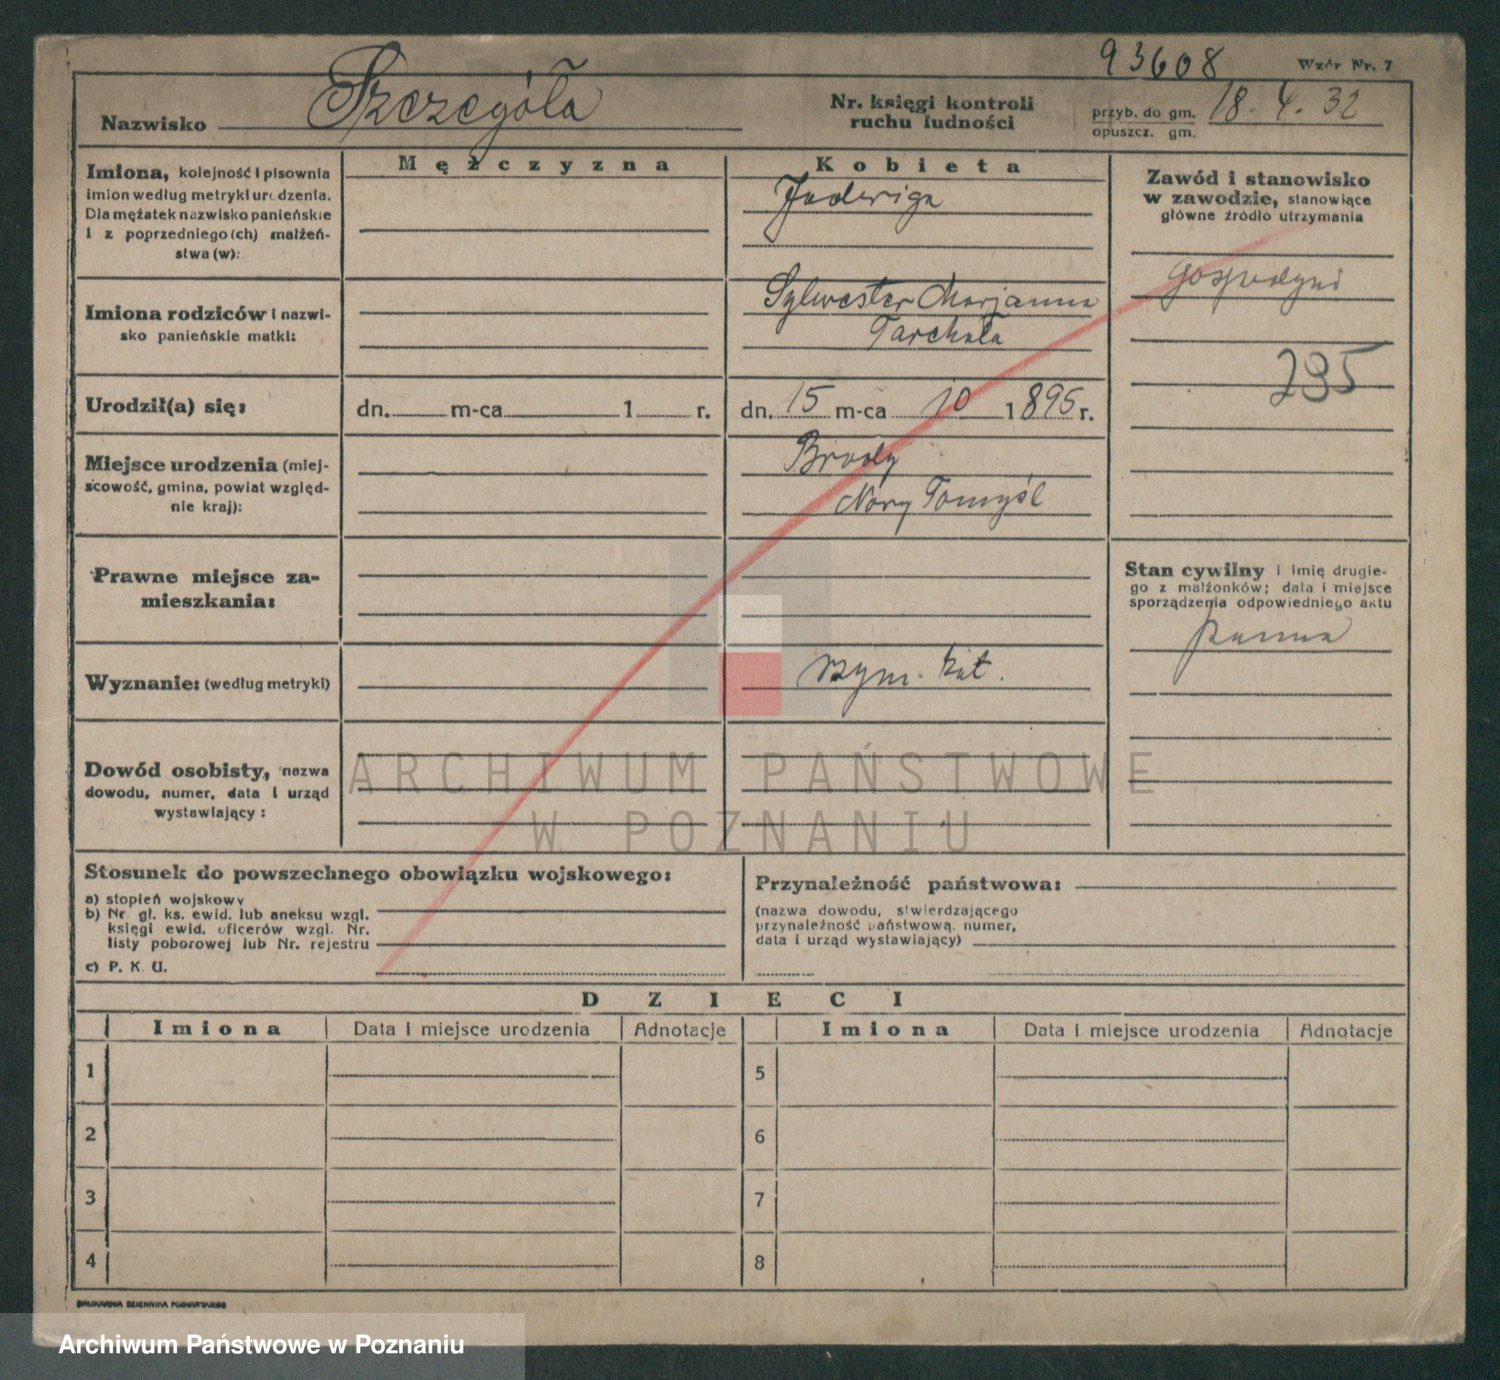 93608
Wzór Nr. 7
Nazwisko Szczegóła
Nr. księgi kontroli
ruchu ludności
przyb. do gm. 18. 4. 32
opuszcz. gm.
Mężczyzna
Kobieta
Imiona, kolejność i pisownia
imion według metryki urodzenia.
Dla mężatek nazwisko panieńskie
i z poprzedniego (ch) małżeń-
stwa (w):
Jadwiga
Zawód i stanowisko
w zawodzie, stanowiące
główne źródło utrzymania
gospodyni
235
Imiona rodziców i nazwi-
sko panieńskie matki:
Sylwester Marjanna
Tarchała
Urodził(a) się:
dn. m-ca 1 r.
dn. 15 m-ca 10 1895 r.
Miejsce urodzenia (miej-
scowość, gmina, powiat względ-
nie kraj):
Brody
Nowy Tomyśl
Prawne miejsce za-
mieszkania:
Stan cywilny i imię drugie-
go z małżonków; data i miejsce
sporządzenia odpowiedniego aktu
panna
Wyznanie: (według metryki)
rzym. kat.
Dowód osobisty, nazwa
dowodu, numer, data i urząd
wystawiający:
ARCHIWUM PAŃSTWOWE
W POZNANIU
Stosunek do powszechnego obowiązku wojskowego:
a) stopień wojskowy
b) Nr. gł. ks. ewid. lub aneksu wzgl.
księgi ewid. oficerów wzgl. Nr.
listy poborowej lub Nr. rejestru
c) P. K. U.
Przynależność państwowa:
(nazwa dowodu, stwierdzającego
przynależność państwową, numer,
data i urząd wystawiający)
DZIECI
Imiona Data i miejsce urodzenia Adnotacje Imiona Data i miejsce urodzenia Adnotacje
1 5
2 6
3 7
4 8
DRUKARNIA DZIENNIKA POZNAŃSKIEGO
Archiwum Państwowe w Poznaniu